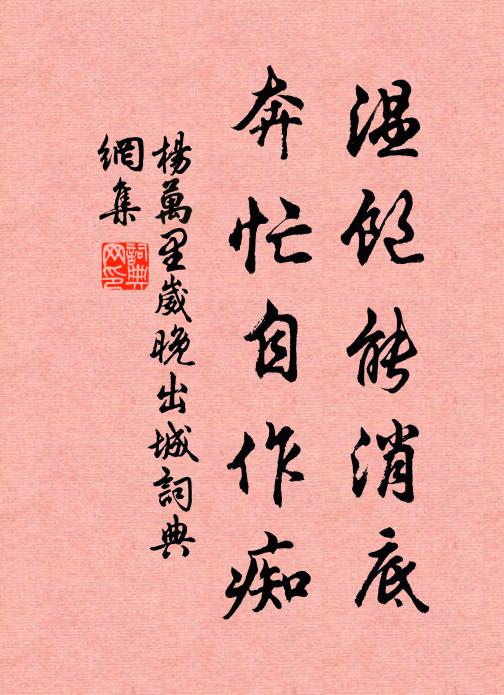 温饱能消底
奔忙自作痴
楊萬里歲晚出城詞典
網集
詞典
网印